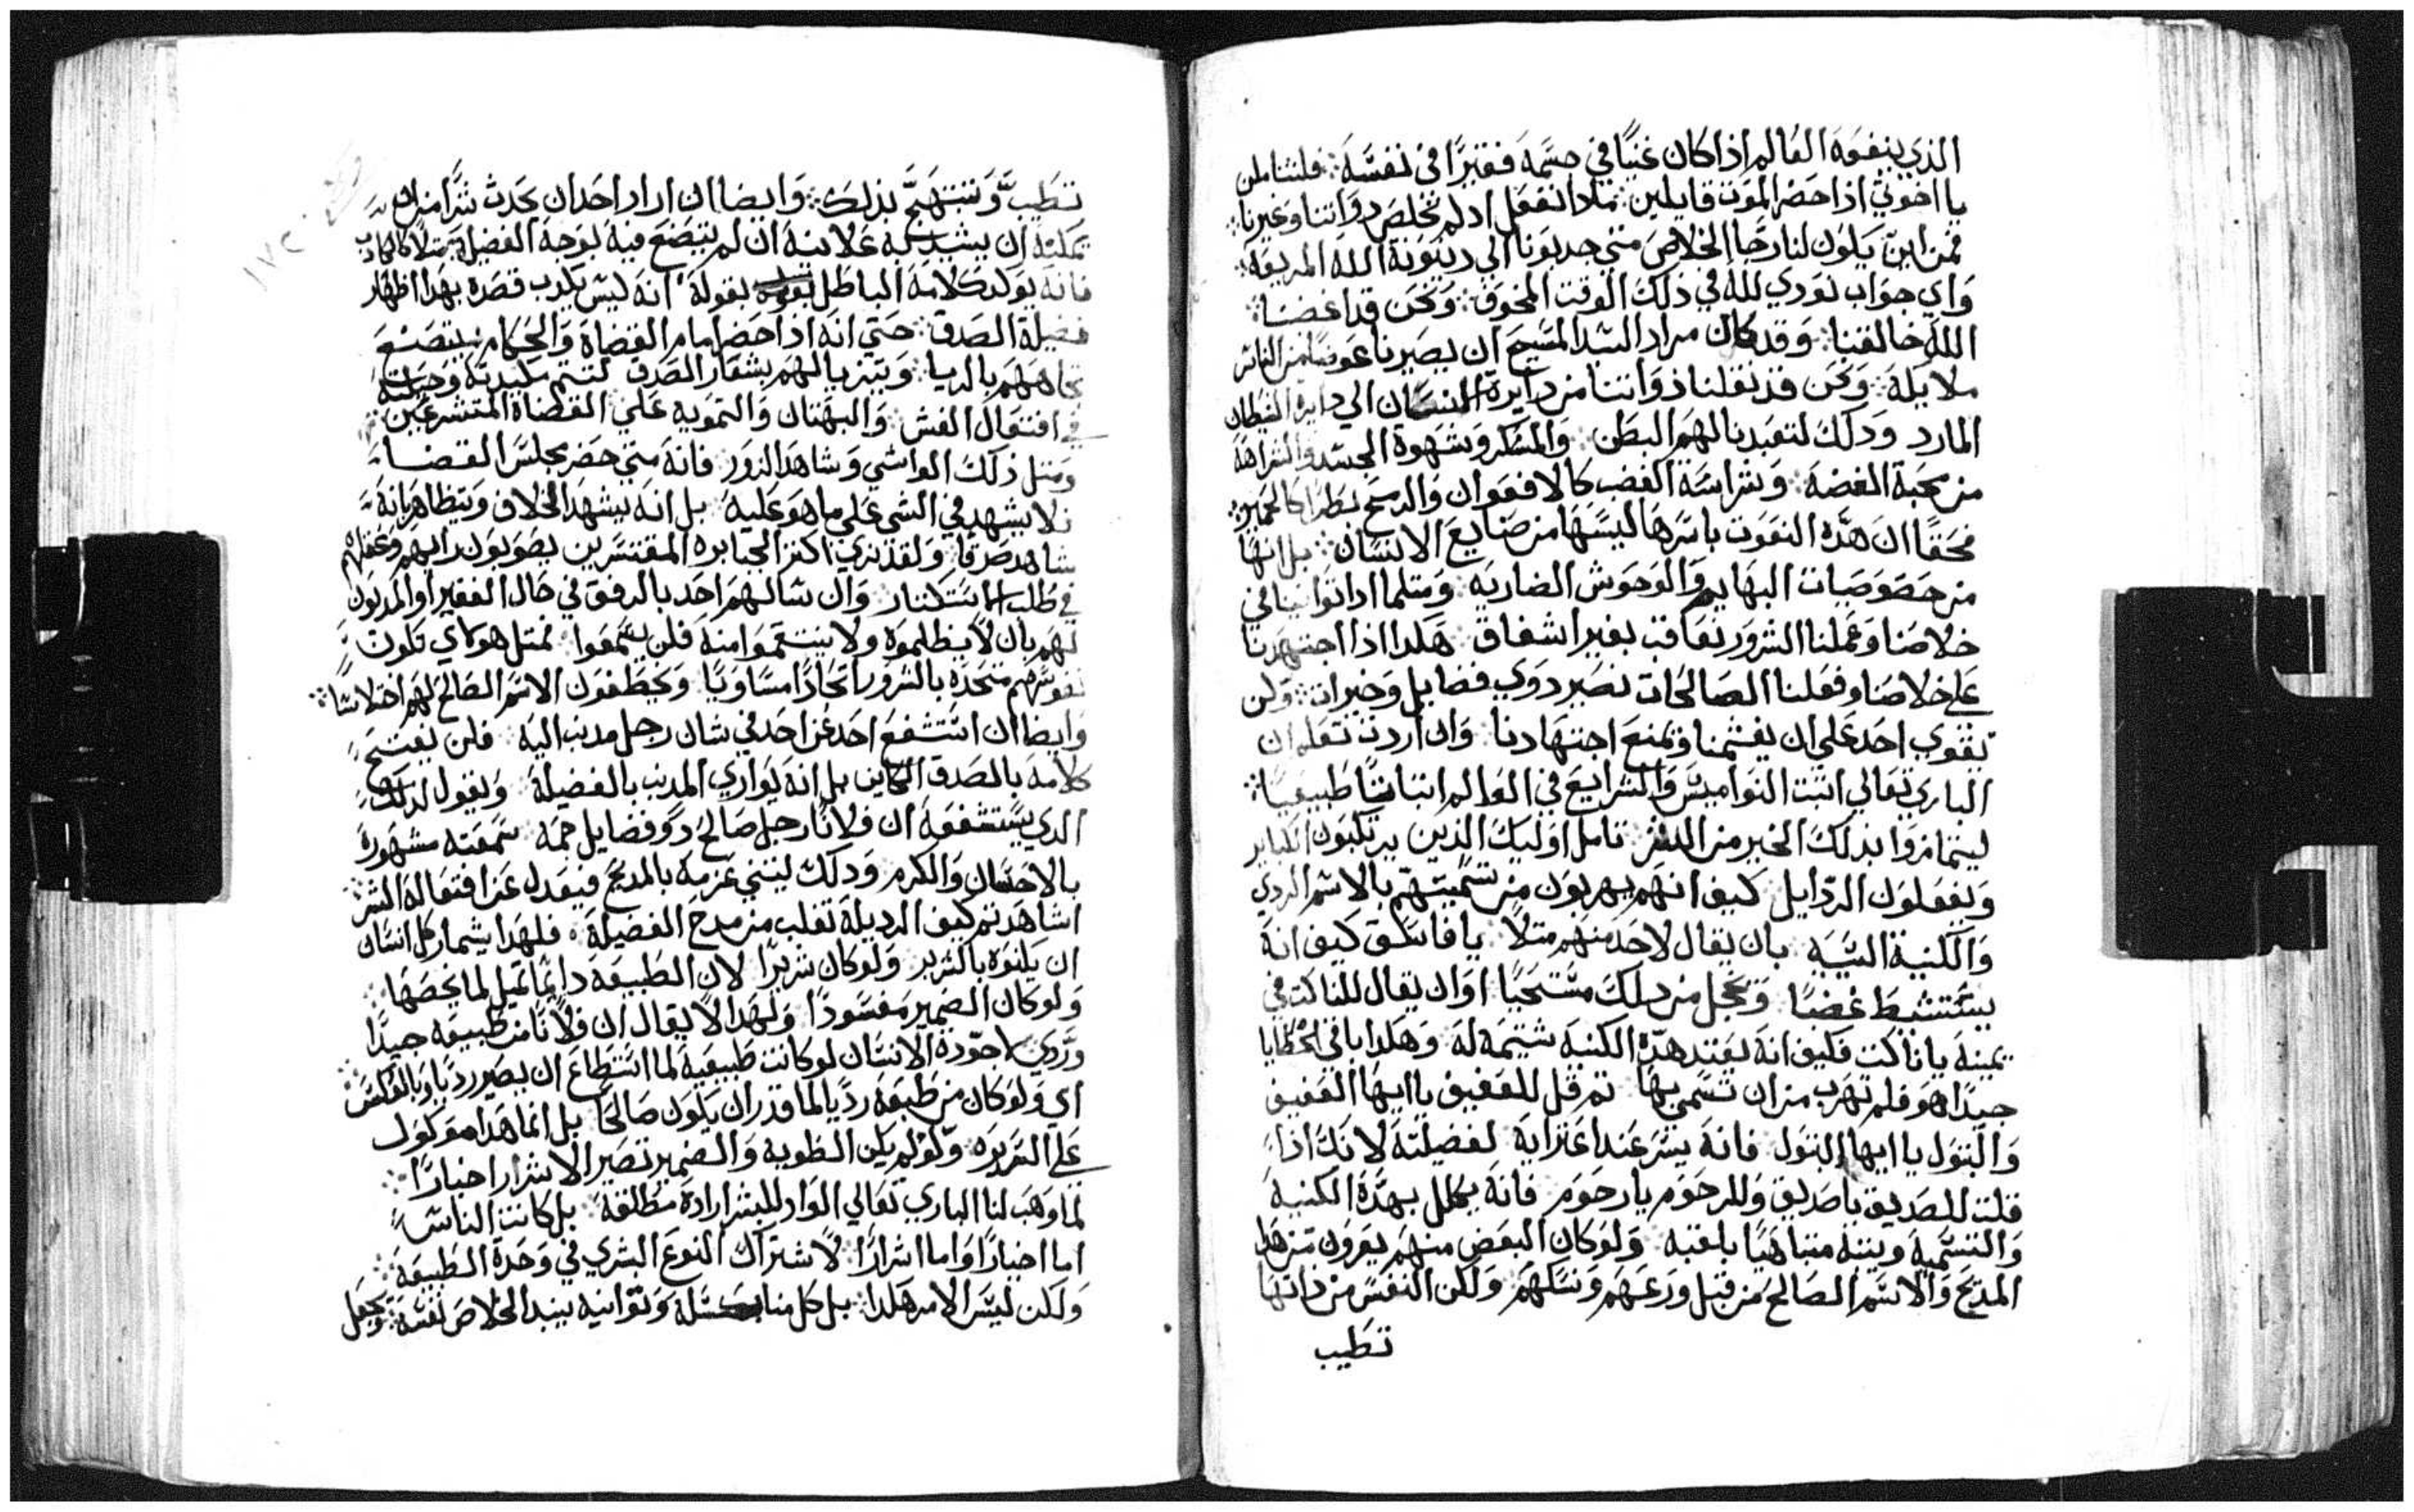 الذي ينفعه العالم اذا كان غنيًا في جسمه فقيرًا في نفسه ∴ فلنتاملن
يا اخوتي اذا حضر الموت قايلين ∴ ماذا نفعل اذ لم نخلص دواتنا وغيرنا ∴
فمن اين يكون لنا رجا الخلاص متي جديونا الي دينونة الله المريعه ∴
واي جواب نودي لله في ذلك الوقت المخوف ∴ ونحن قد اغضبنا
الله خالقنا ∴ وقد كان مراد السيد المسيح ان يصيرنا عوضًا من الناس
ملايكه ∴ ونحن قد نقلنا ذواتنا من دايرة الانسان الي دايرة الشيطان
المارد ودلك لتعبدنا لهم البطن ∴ والسكر وشهوة الجسد والشراهه
من محبة الفضه ∴ وشراسة الغضب كالافعوان والرمح نظرًا كالحمير ∴
فحقًا ان هذه النعوت باسرها ليسها من صنايع الانسان ∴ بل انها
من خصوصيات البهايم والوحوش الضاريه ∴ ومتلما ادا توانينا في
خلاصنا وعملنا الشرور نعاقب بغير اشفاق ∴ هكدا اذا اجتهدنا
علي خلاصنا وفعلنا الصالحات نصير دوي فضايل وخيرات ∴ ولن
يقوي احد علي ان يغشمنا ويمنع اجتهادنا ∴ وان اردت تعلم ان
الباري تعالي اتبت النواميس والشرايع في العوالم اتباتًا طبيعيًا ∴
ليتمازوا بدلك الخير من الشر ∴ تامل اوليك الذين يرتكبون الكباير
ويفعلون الردايل كيف انهم يهربون من تسميتهم بالاسم الردي
والكنية السيه ∴ بان يقال لاحد منهم متلًا يا فاسق كيف انه
يستشيط غضبًا ويخجل من دلك مستحيًا او ان يقال للناكت في
يمينه يا ناكت فكيف انه يعتد هده الكنيه شتيمه له وهكدا باقي الخطايا
جيدًا هو فلم تهرب من ان تسمي بها تم قل للعفيف يا ايها العفيف
والبتول يا ايها البتول فانه يسر عند اعترايه لفضيلته لانك اذا
قلت للصديق يا صديق وللرحوم يا رحوم فانه يكلل بهده الكنيه
والتسميه ويتيه متباهيًا بلقبه ولو كان البعض منهم يفرون من هدا
المديح والاسم الصالح من قبل ورعهم ونسكهم ولكن النفس من ذاتها
تطيب
١٧٢
تطيب وتبتهج بذلك ∴ وايضا ان اراد احد ان يحدث شرًا
يمكنه ان يشيد به علانية ان لم يتضع فيه بوجه الفضيل متلًا كالكادب
فانه يولد كلامه الباطل بقوله انه ليس يكدب قصده بهدا اظهار
فضيلة الصدق ∴ حتي انه اذا حضر امام القضاة والحكام يتصنع
تجاههم بالريا ∴ ويتزيا لهم بشعار الصدق لتتم مكيدته وحيلته
في افتعال الغش والبهتان والتمويه علي القضاة المتشرعين ∴
ومتل ذلك الواشي وشاهد الزور ∴ فانه متي حضر مجلس القضا
فلا يشهد في الشي علي ما هو عليه بل انه يشهد الخلاف ويتظاهر بانه
شاهد صدقًا ولقد نري اكتر الجبابره المقتسرين يصوبون رايهم وعقلهم
في طلب الاستكتار وان سالهم احد بالرفق في حال الفقير او المديون
لهم بان لا يظلموه ولا ينتقموا منه فلن يسمعوا ∴ فمتل هولاي تكون
نفوسهم متحده بالشرور اتحادًا مساويًا ويخطفون الاسم الصالح لهم اختلاسًا ∴
وايضا ان استشفع احد عن احد في شان رجل مدنب اليه ∴ فلن يفتتح
كلامه بالصدق الكاين بل انه يواري المدنب بالفضيلة ويقول لدلك
الدي يستشفعه ان فلانًا رجل صالح دو فضايل جمه سمعته مشهورة
بالاحسان والكرم ودلك ليتني عزمه بالمديح فيعدل عن افتعاله الشر ∴
اشاهدتم كيف الرديلة تغلب من مدح الفضيلة ∴ فلهدا يشماز كل انسان
ان يلقوه بالشرير ولو كان شريرًا لان الطبيعه دايمًا تميل لما يخصها ∴
ولو كان الضمير مفسودًا ولهدا لا يقال ان فلانًا من طبيعه جيدًا
وردي لا جودة الانسان لو كانت طبيعية لما استطاع ان يصير رديًا وبالعكس ∴
اي ولو كان من طبعه رديًا لما قدر ان يكون صالحًا بل انما هدا موكول
علي السريره ولو لم يكن الطويه والضمير تصير الاشرار اخيارًا ∴
لما وهب لنا الباري تعالي الواد للبشر ارادة مطلقة بل كانت الناس
اما اخيارًا واما اشرارًا لاشتراك النوع البشري في وحدة الطبيعة ∴
ولكن ليس الامر هكدا ∴ بل كل منا بكسله وتوانيه ينبد الخلاص نفسه ويجعل